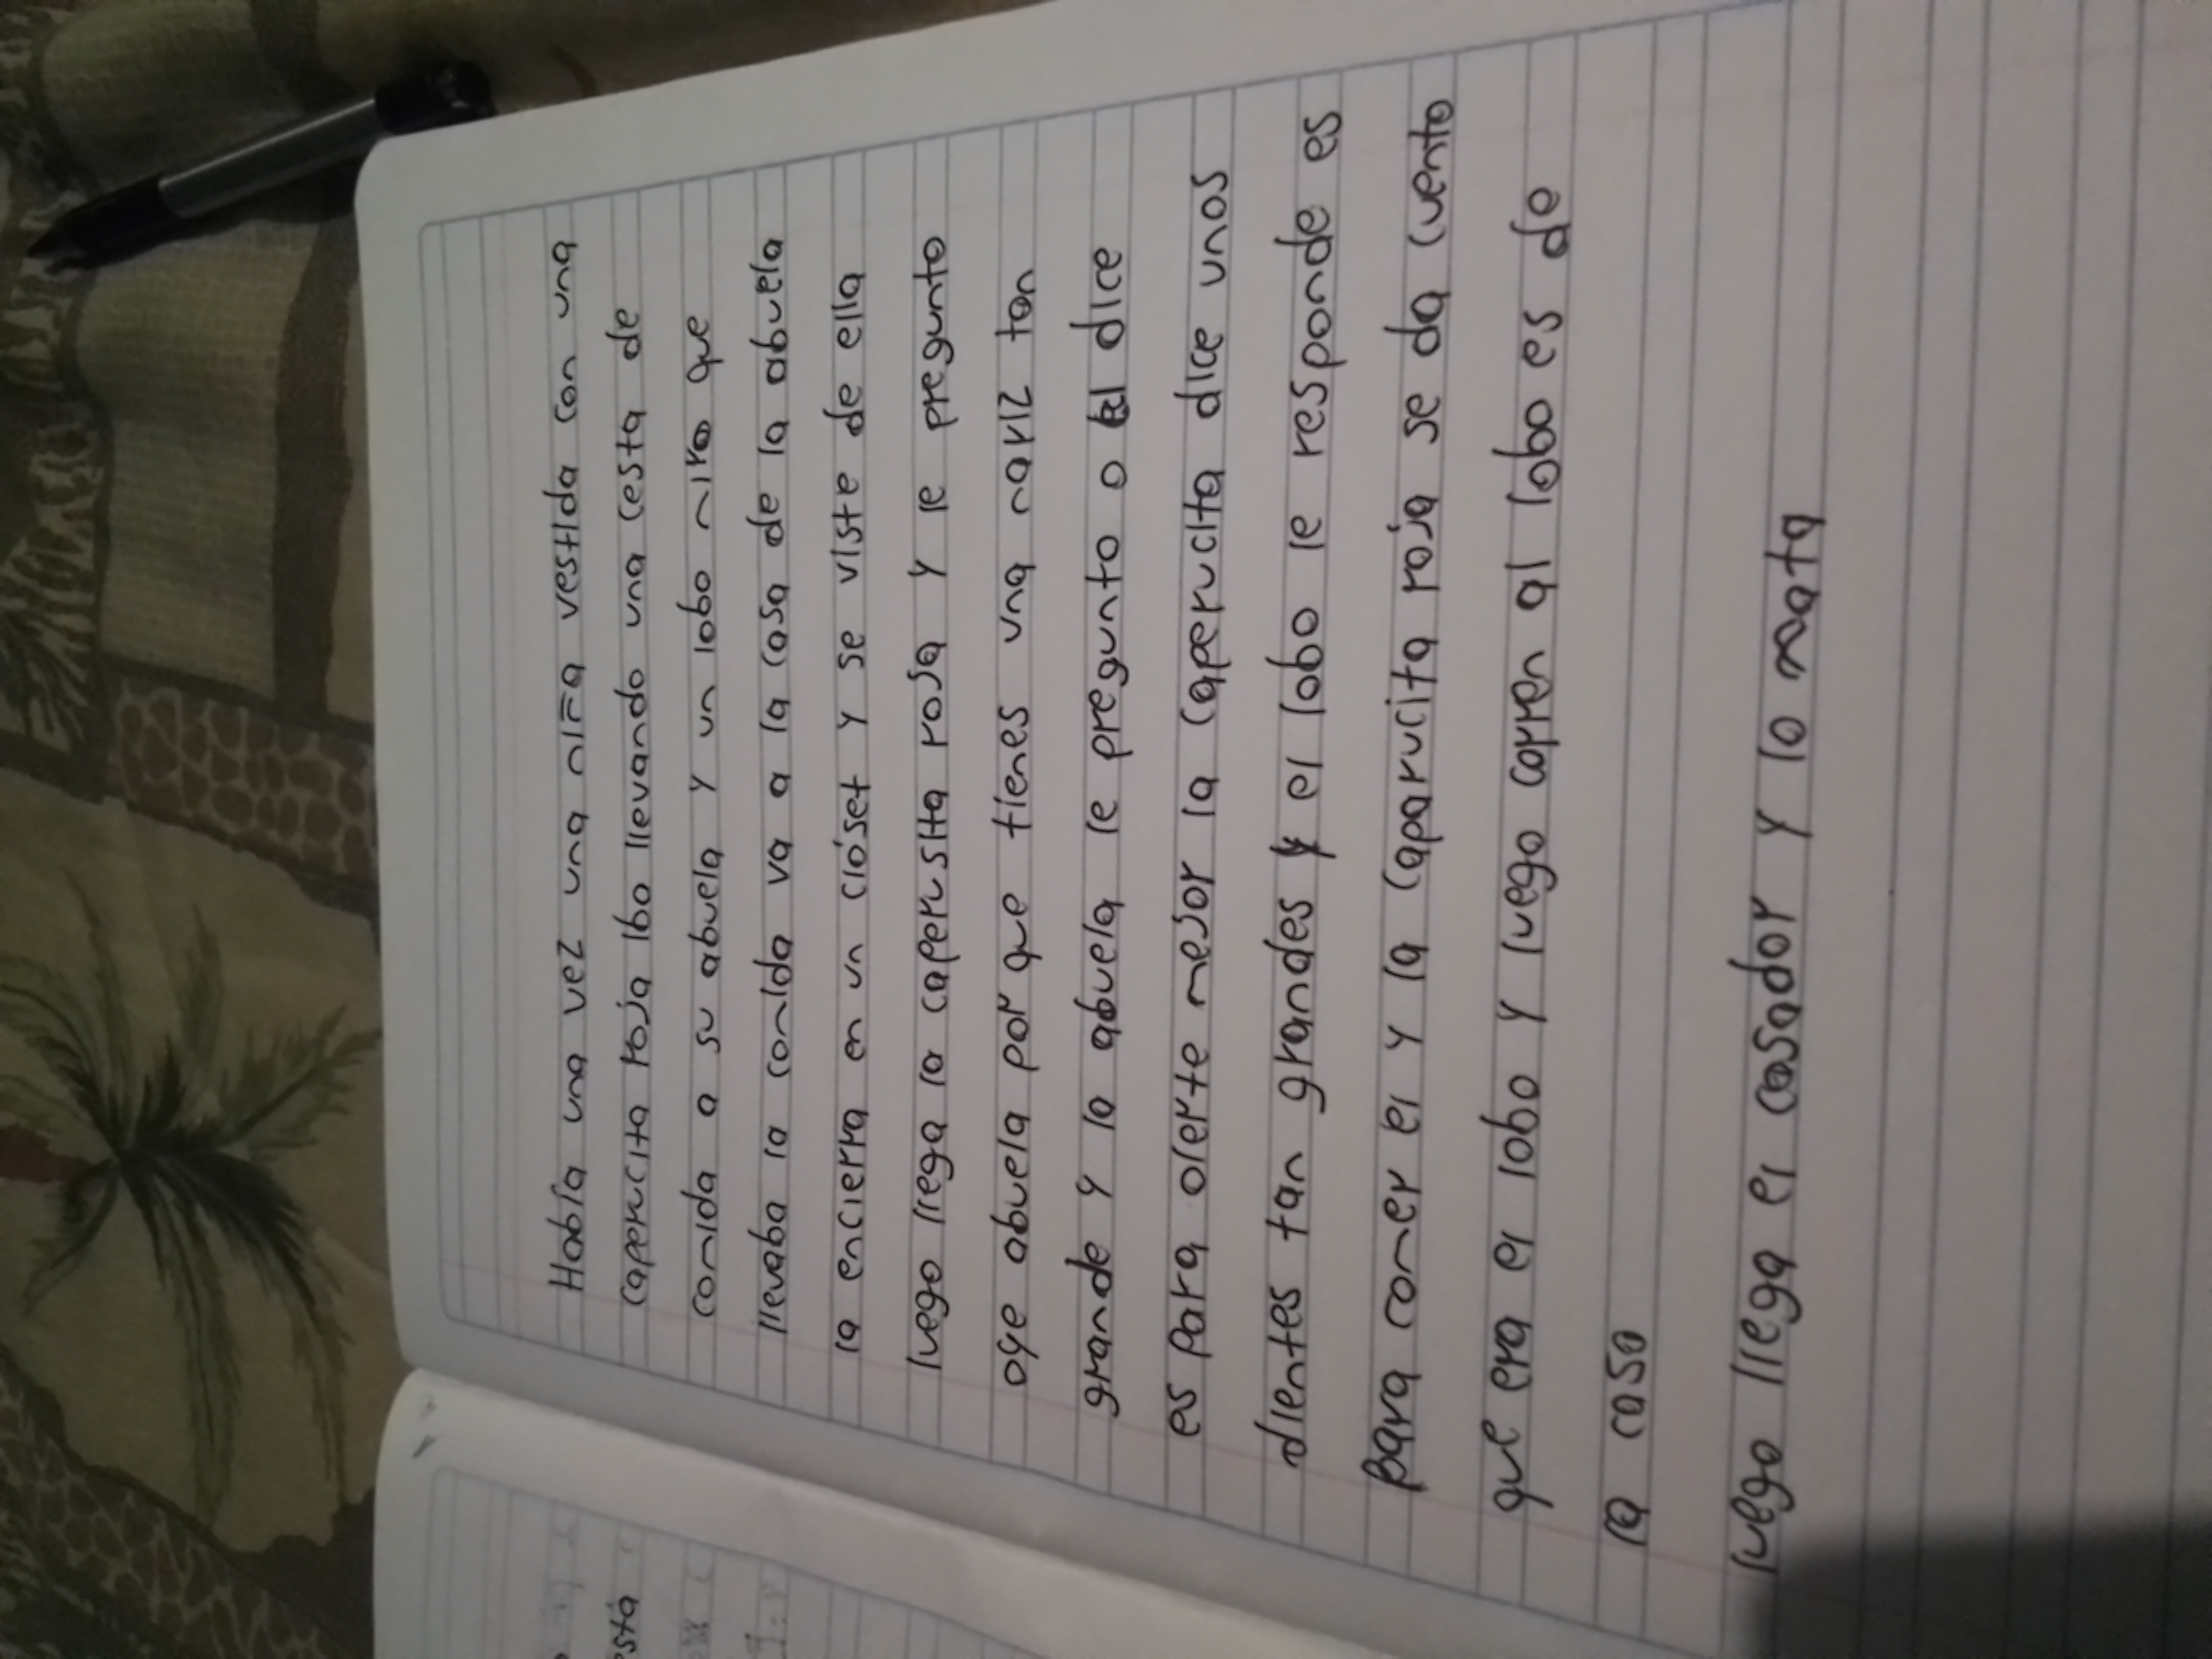 Habia una vez una niña vestida con una
caperucita roja lobo llevando una cesta de
comida a su abuela y un lobo miro que
llevaba la comida va a la cosa de la abuela
la encierra en un closet y se viste de ella
luego llega la caperusita roja y le pregunto
oye abuela por que tienes una nariz tan
grande y la abuela le pregunto o el dice
es para olerte mejor la caperucita dice unos
dientes tan grandes el lobo le responde es
para comer el y la caparucita roja se da cuenta
que era el lobo y luego corren al lobo es de
la cosa
luego llega el casador y lo mata